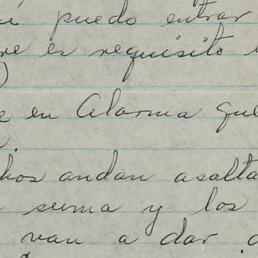 puedo entrar
re es requisito
)
e en Alarma que
hos andan asalta
suma y los
van a dar